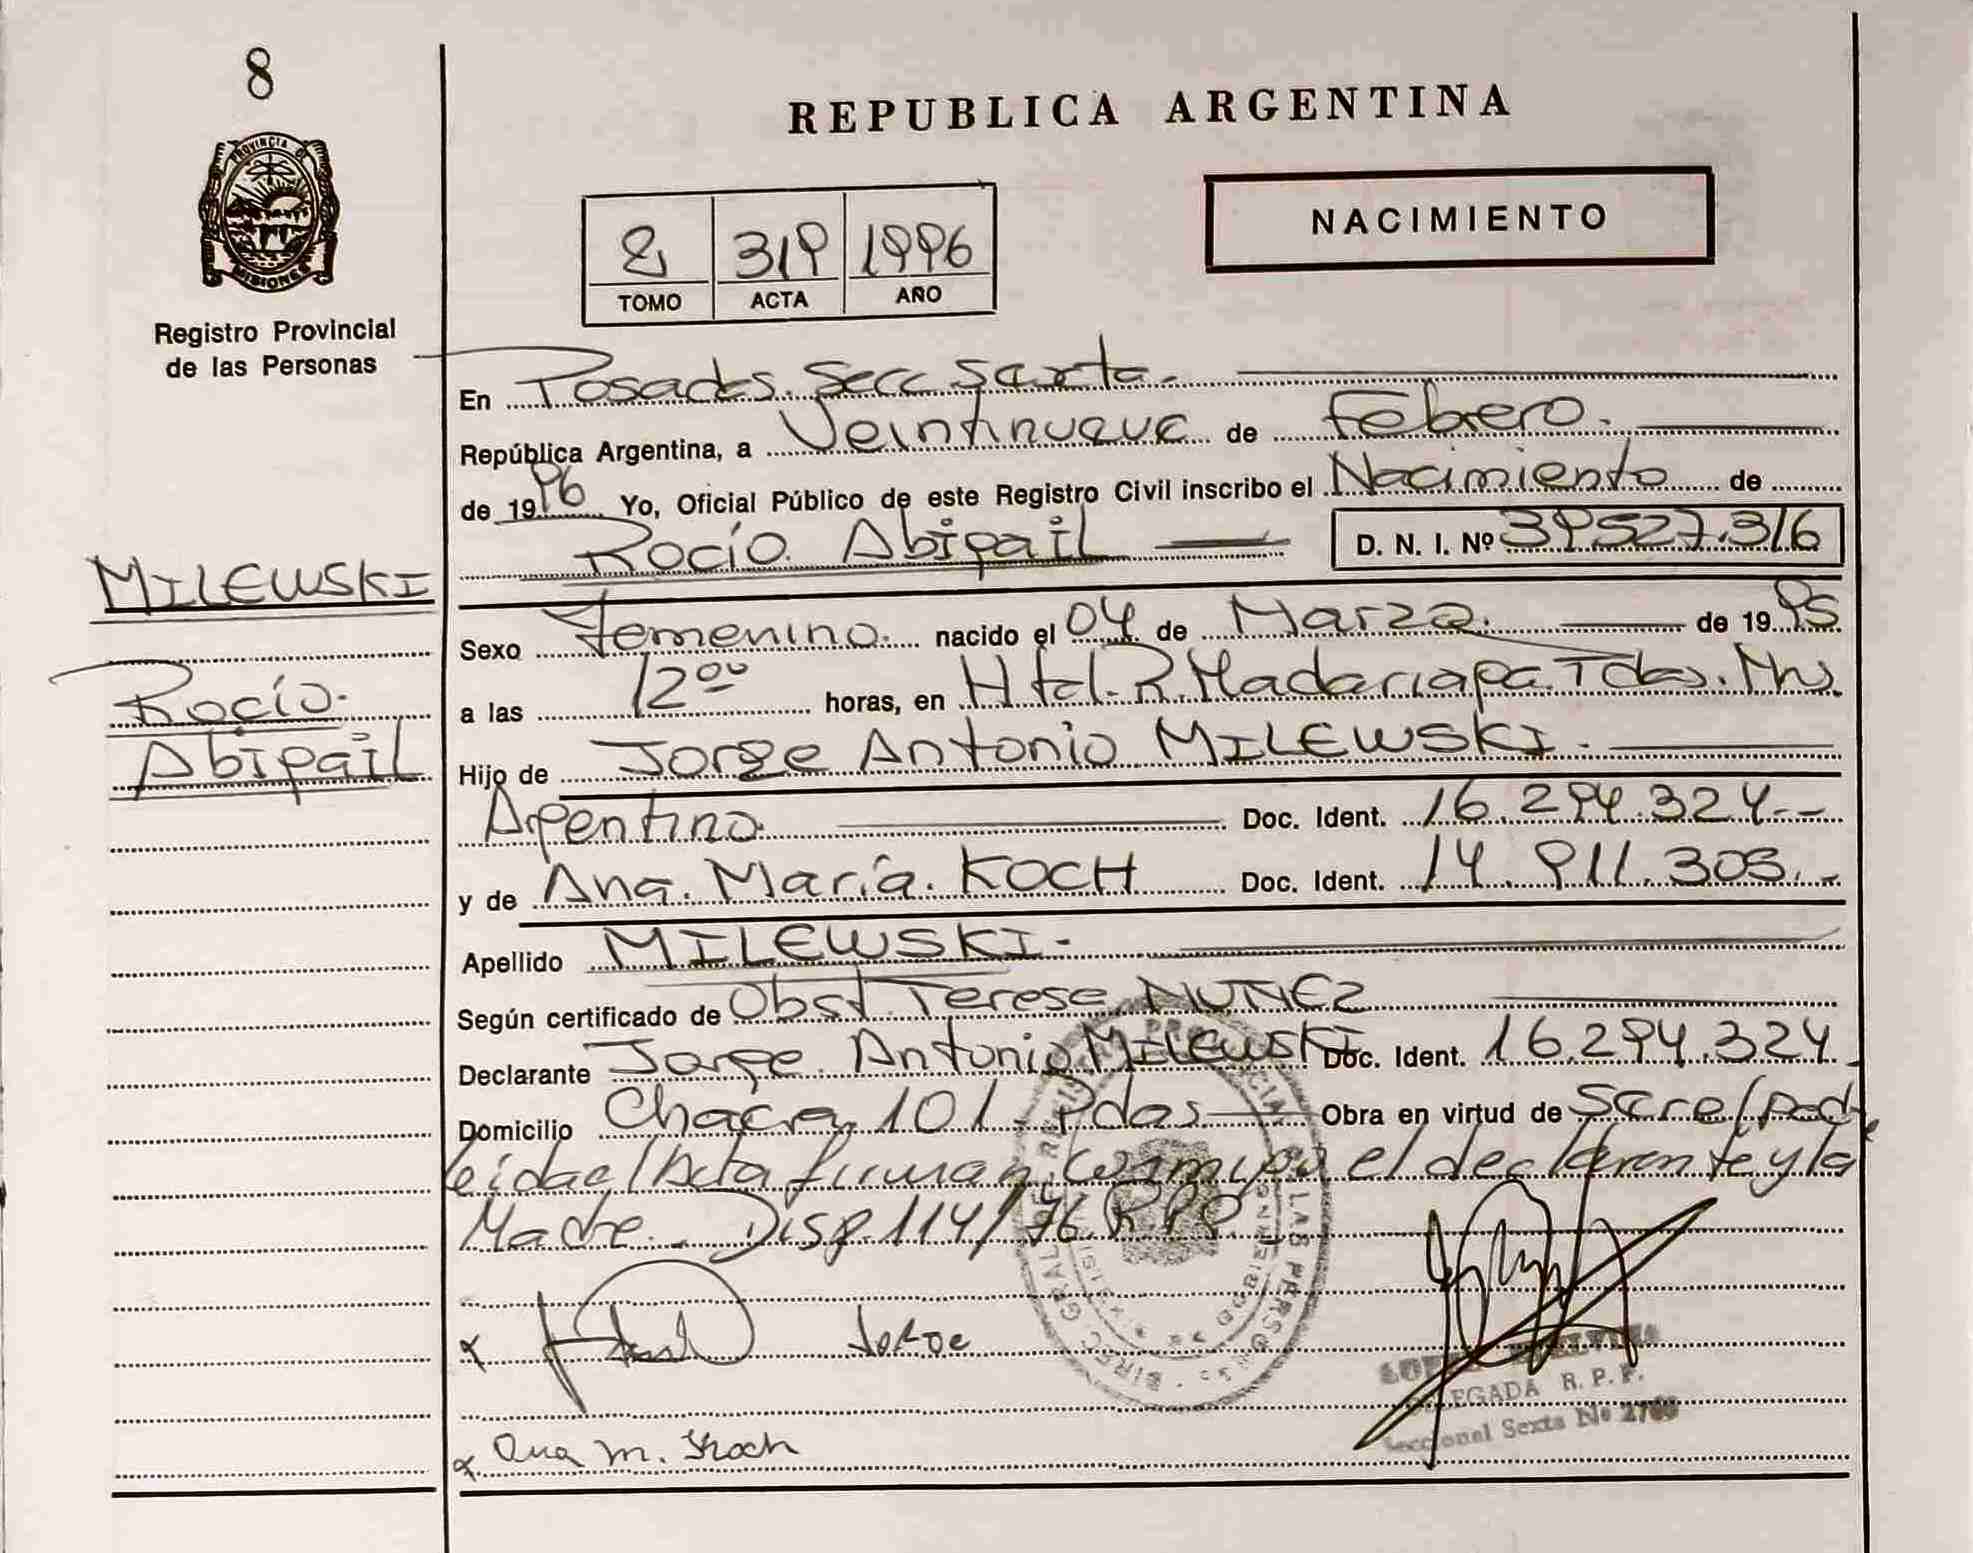 8
PROVINCIA DE
MISIONES
Registro Provincial
de las Personas
MILEWSKI
Rocío.
Abigail
REPUBLICA ARGENTINA
NACIMIENTO
2 319 1996
TOMO ACTA AÑO
En Posadas. Secc Sexta.
República Argentina, a Veintinueve de Febrero.
de 1996 Yo, Oficial Público de este Registro Civil inscribo el Nacimiento de
Rocío Abigail D. N. I. Nº 39527.316
Sexo Femenino. nacido el 04 de Marzo. de 1995
a las 12⁰⁰ horas, en Htal. R. Madariaga.
Hijo de Jorge Antonio MILEWSKI.
Argentino Doc. Ident. 16.294.324.--
y de Ana. María. KOCH Doc. Ident. 14.911.303.-
Apellido MILEWSKI-
Según certificado de Obst. Teresa NUÑEZ
Declarante Jorge Antonio Milewski Doc. Ident. 16.294.324.
Domicilio Chacra 101. Pdas Obra en virtud de
Leida el Acta firman conmigo el declarante y la
Madre. Disp. 114/76. R.P.P.
Jorge
DELEGADA R. P. P.
Seccional Sexta Nº
x Ana M. Koch